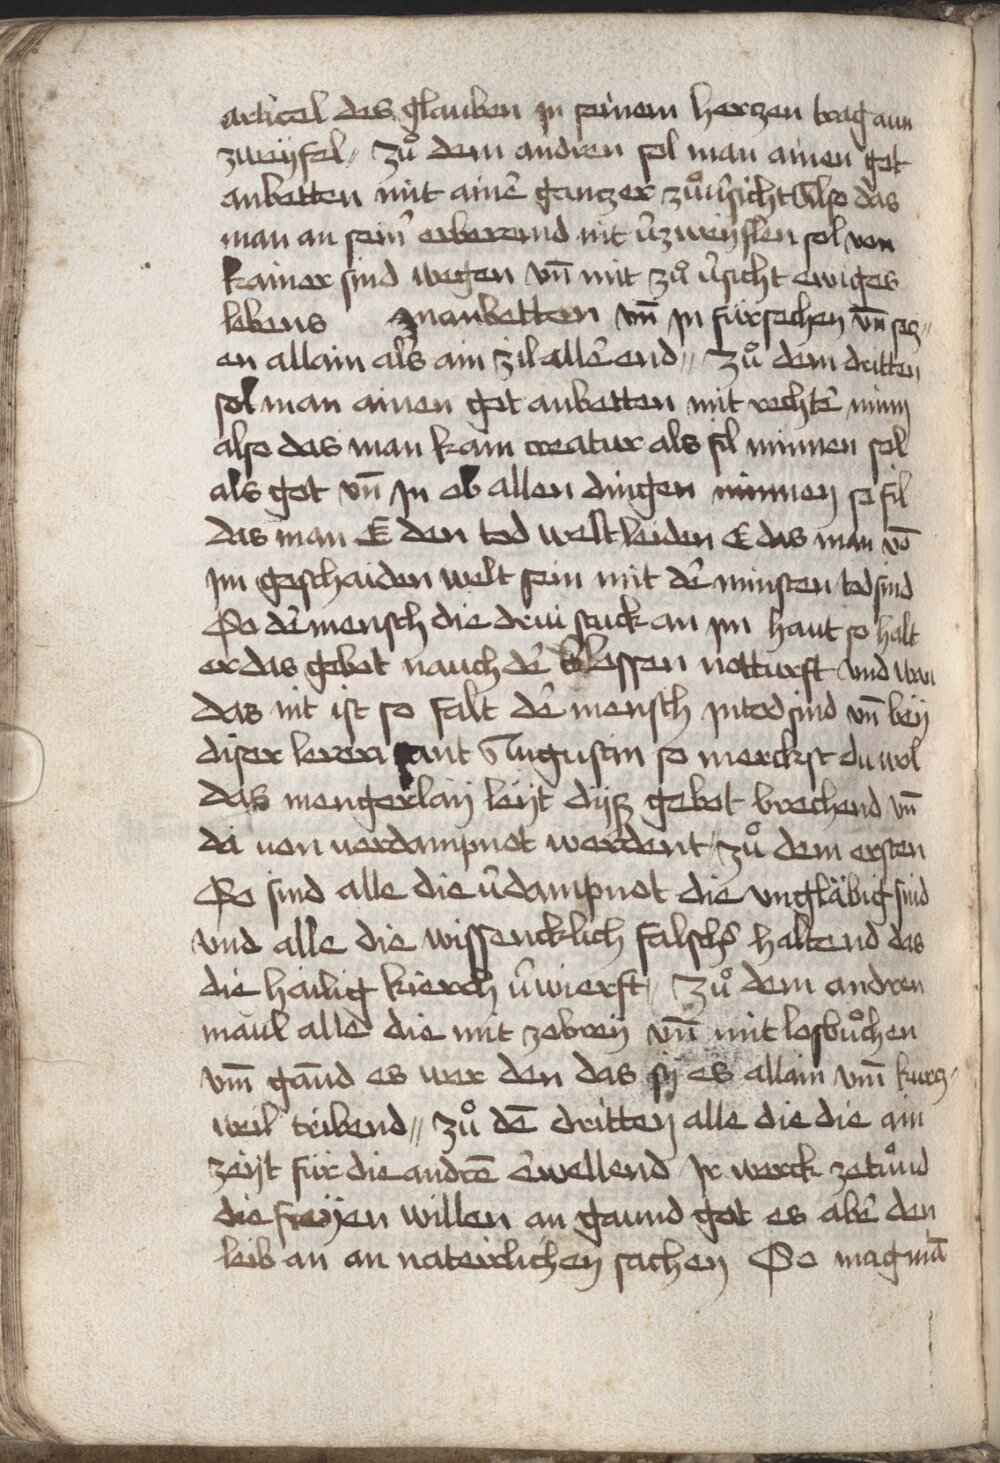 articel des glauben jn seinem herczen trag aun
zweÿfel // zuͦ dem andren sol man ainen got
anbetten mit ainē ganczer zuͦūsicht Also das
man an sein̄ erbermd nit ūzweÿflen sol von
kainer sind wegen vn̄ mit zuͦ ūsicht ewiges
lebens zu anbetten vn̄ jn fürsechen vn̄ secz //
en allain als ain zil allē end // Zuͦ dem dritten
sol man ainen got anbetten mit rechtē minn
also das man kain creatur als fil minnen sol
als got vn̄ Jn ob allen dingen minnen so fil
das man E den tod welt leiden E das man vō
jm geschaiden welt sein mit dē minsten tod sind
So dē mensch die drui stuck an jm haut so halt
er das gebot nauch dē blossen notturft vnd wan
das nit ist so falt dē mensch jn tod sind vn̄ beÿ
diser lereri sant Augustin so merckst du wol
das mengerlaÿ leÿt dÿß gebot brechend vn̄
da uon uerdampnot werdent / zuͦ dem ersten
So sind alle die ūdampnot die vngläbig sind
vnd alle die wissencklich falschs haltend das
die hailig kierch ūwierft // Zuͦ dem andren
maul alle die mit zobreÿ vn̄ mit losbuͦchen
vm̄ gān̄d es wer den das sÿ es allain vm̄ kurcz //
weil tribend // zuͦ dē dritten alle die die ain
zeÿt für die andrē ērwellend Jr werck zetuͦnd
die freÿen willen an gaund got es abē den
leib an an naterlichen sachen So mag mā